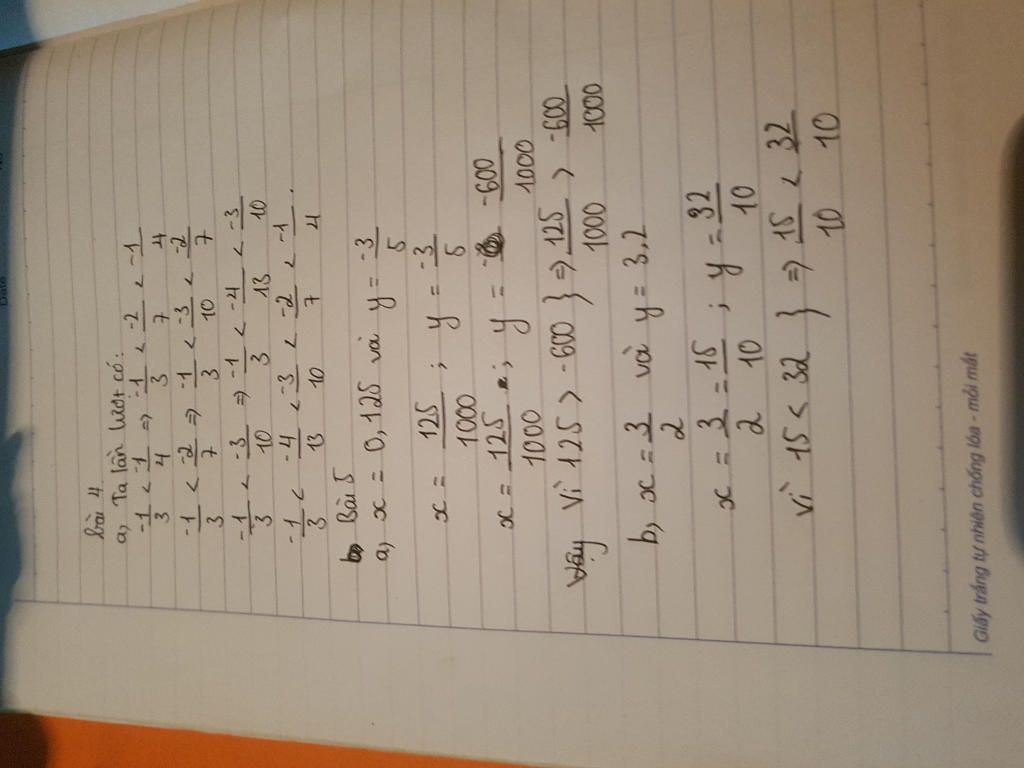 Bài 4
a, Ta lần lượt có:
-1/3 < -1/4 => -1/3 < -2/7 < -1/4
-1/3 < -2/7 => -1/3 < -3/10 < -2/7
-1/3 < -3/10 => -1/3 < -4/13 < -3/10
-1/3 < -4/13 < -3/10 < -2/7 < -1/4.
Bài 5
a, x = 0,125 và y = -3/5
x = 125/1000 ; y = -3/5
x = 125/1000 ; y = -600/1000
Vậy Vì 125 > -600 } => 125/1000 > -600/1000
b, x = 3/2 và y = 3,2
x = 3/2 = 15/10 ; y = 32/10
Vì 15 < 32 } => 15/10 < 32/10
Giấy trắng tự nhiên chống lóa - mỏi mắt